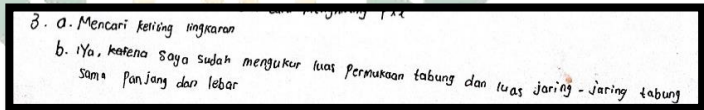 3. a. Mencari keliling lingkaran
b. Iya, karena saya sudah mengukur luas permukaan tabung dan luas jaring-jaring tabung
sama panjang dan lebar